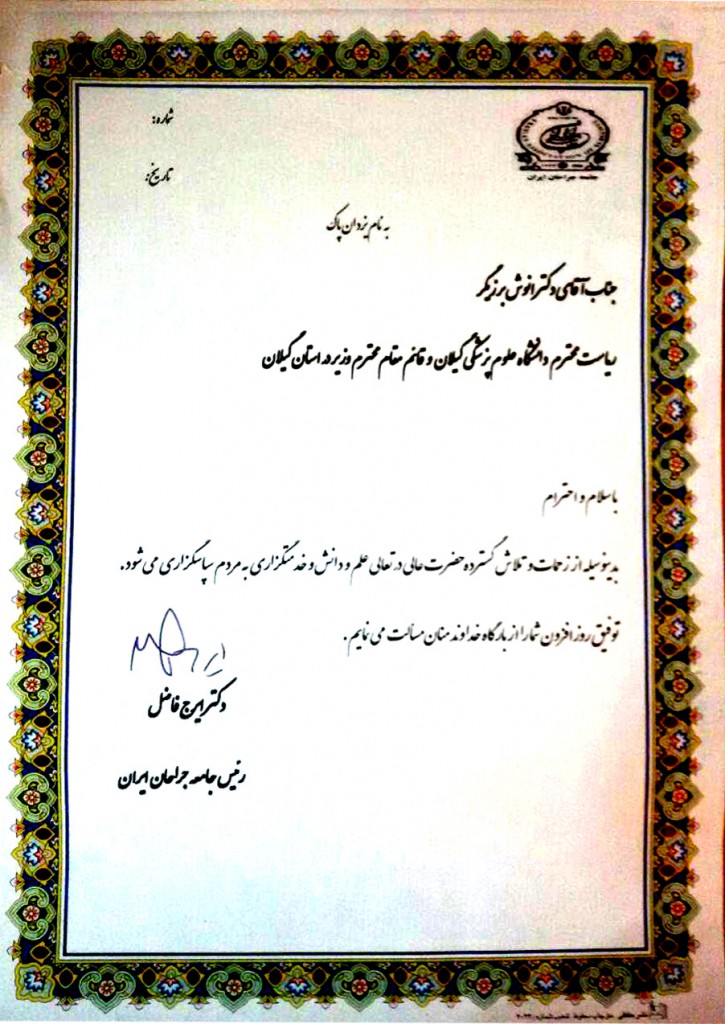 جامعه جراحان ایران
شماره:
تاریخ:
به نام یزدان پاک
جناب آقای دکتر انوش برزیگر
ریاست محترم دانشگاه علوم پزشکی گیلان و قائم مقام محترم وزیر در استان گیلان
با سلام و احترام
بدینوسیله از زحمات و تلاش گسترده حضرت عالی در تعالی علم و دانش و خدمتگزاری به مردم سپاسگزاری می شود.
توفیق روز افزون شما را از بارگاه خداوند منان مسألت می نمایم.
دکتر ایرج فاضل
رئیس جامعه جراحان ایران